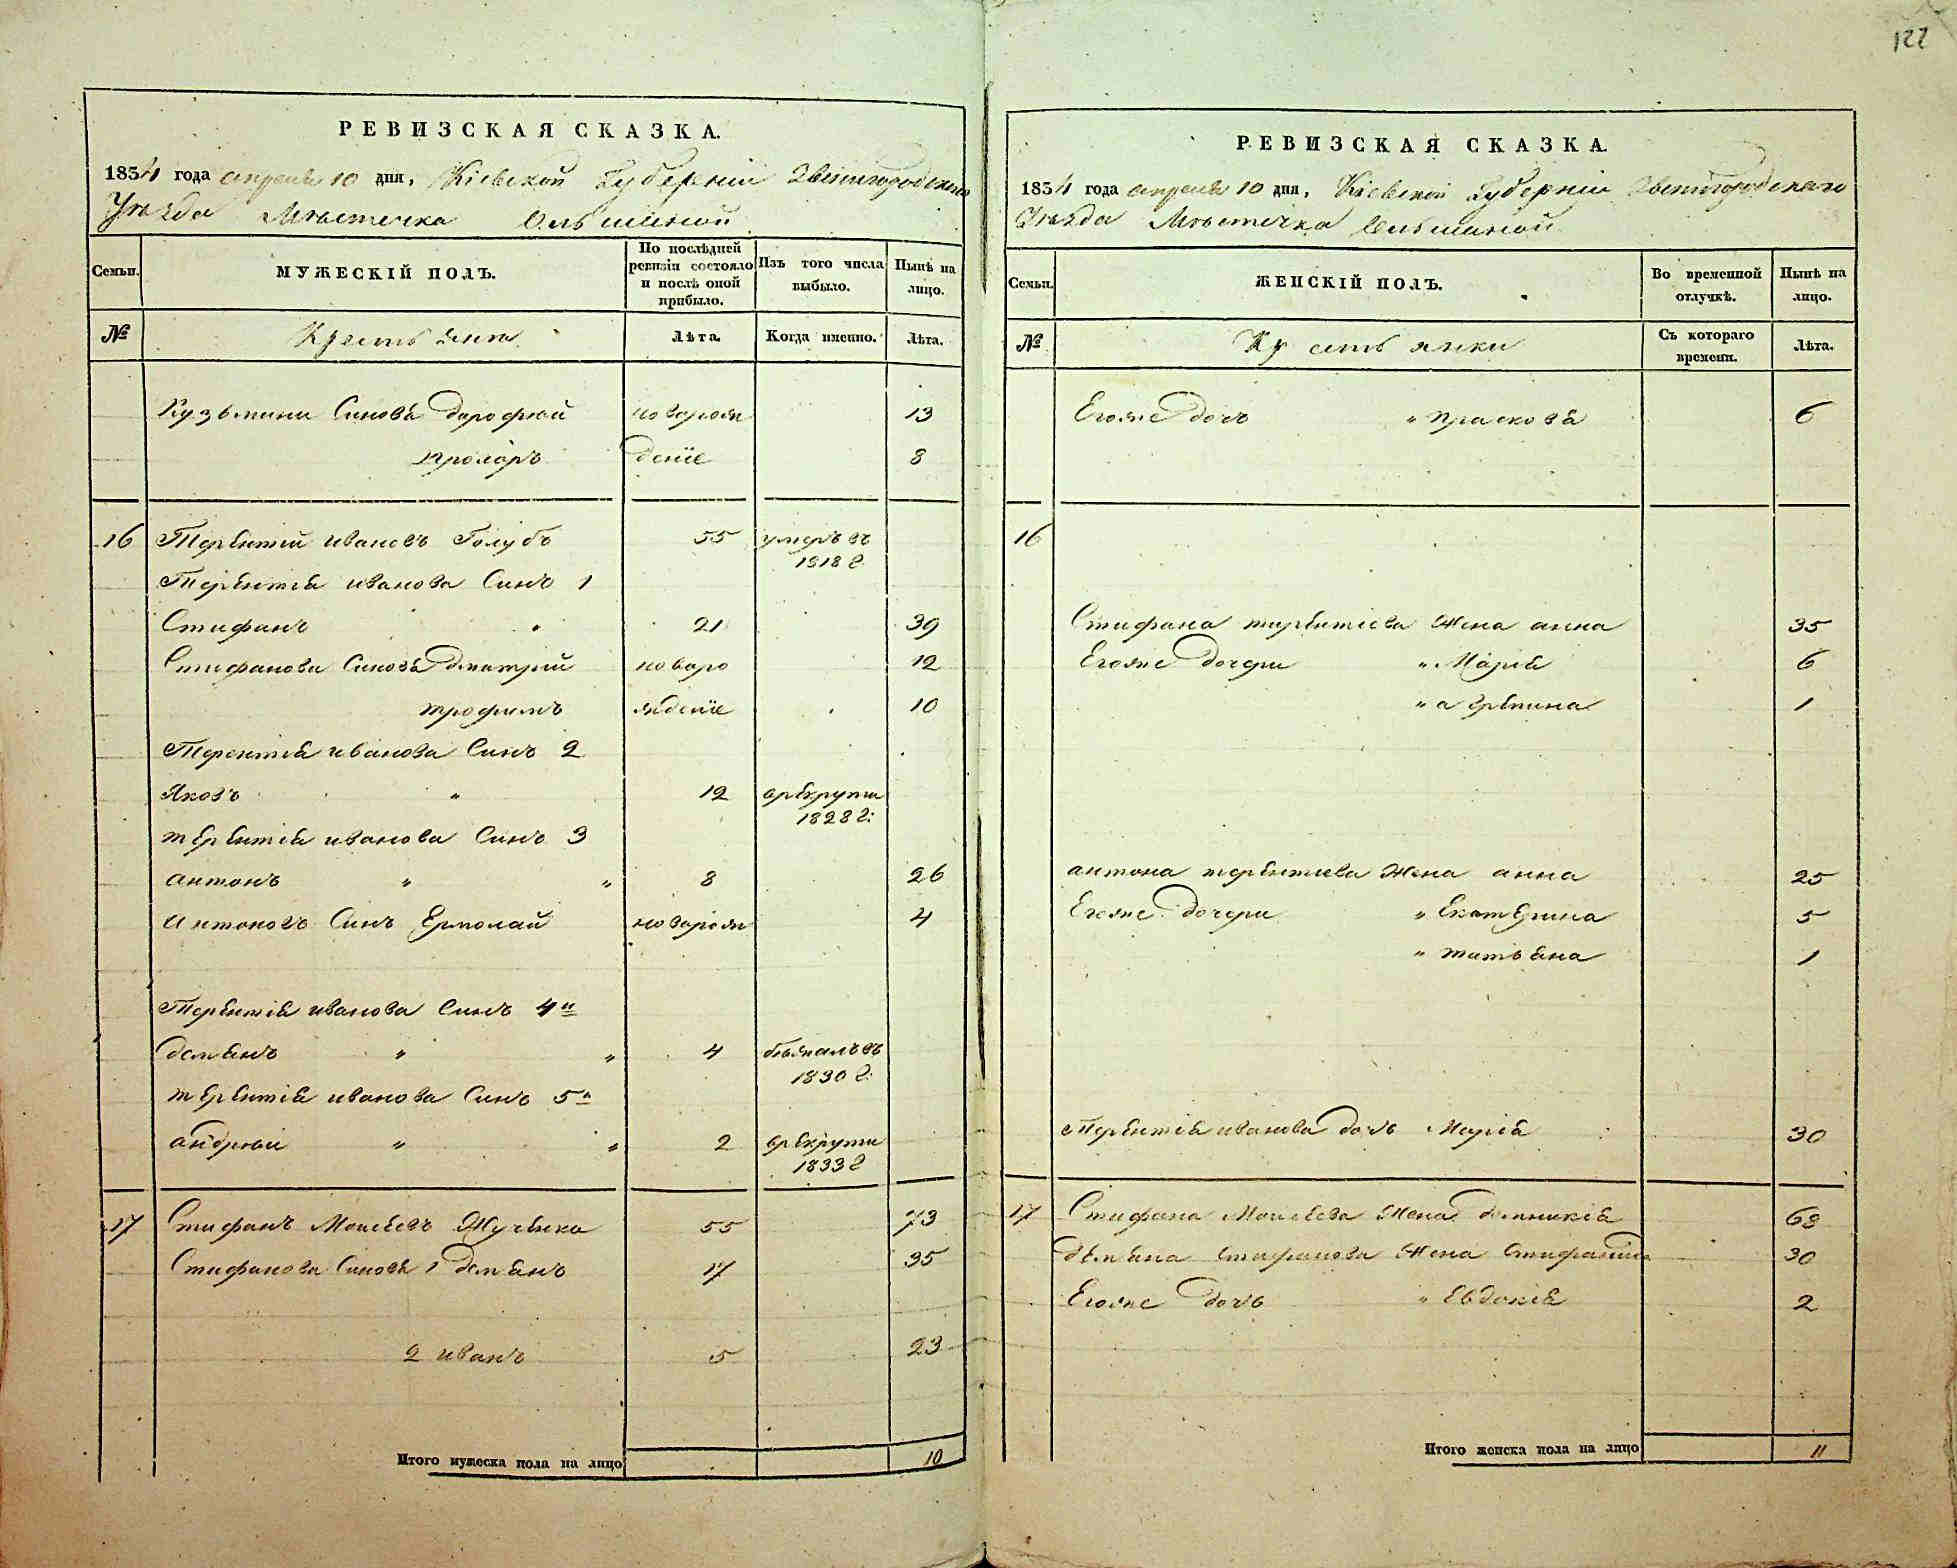 122
РЕВИЗСКАЯ СКАЗКА.
1834 года апреля 10 дня, Кіевской Губерніи Звенигородскаго
Уѣзда Мѣстечка Ольшаной
Семьи.
МУЖЕСКІЙ ПОЛЪ.
По послѣдней ревизіи состояло и послѣ оной прибыло.
Изъ того числа выбыло.
Нынѣ на лицо.
№ Крестьяни Лѣта. Когда именно. Лѣта.
Кузьмини Синовѧ Дорофѣй новорож 13
Прохоръ деніе 8
16 Терентій Ивановъ Голубъ 55 умеръ въ
1818 г
Терентія Иванова Синъ 1
Стифанъ " 21 39
Стифанови Синовя Дмитрій новоро 12
Трофимъ жденіе 10
Терентія Иванова Синъ 2
Яковъ " 12 врекрути
1828 г:
Терентія Иванова Синъ 3
Антонъ " " 8 26
Антоновъ Синъ Ермолай новорож 4
Терентія Иванова Синъ 4й
Демянъ " " 4 бѣжалъ въ
1830 г:
Терентія Иванова Синъ 5й
Андрѣй " " 2 врекрути
1833 г
17 Стифанъ Моисеевъ Жученко 55 73
Стифанови Синовя 1 Демянъ 17 35
2 Иванъ 5 23
Итого мужеска пола на лицо 10
РЕВИЗСКАЯ СКАЗКА.
1834 года апреля 10 дня, Кіевской Губерніи Звенигородскаго
Уѣзда Мѣстечка Ольшаной
Семьи.
ЖЕНСКІЙ ПОЛЪ.
Во временной отлучкѣ.
Нынѣ на лицо.
№ Крестьянки Съ котораго времени. Лѣта.
Егоже дочъ " Прасковя 6
16
Стифана Терентіева Жена Анна 35
Егоже Дочери " Марія 6
" Агрепина 1
Антона Терентиева Жена Анна 25
Егоже Дочери " Екатерина 5
" Татьяна 1
Терентія Иванова дочъ Марія 30
17 Стифана Моисеева Жена Домникія 68
Демяна Стифанова Жена Стифанида 30
Егоже Дочъ " Евдокія 2
Итого женска пола на лицо 11